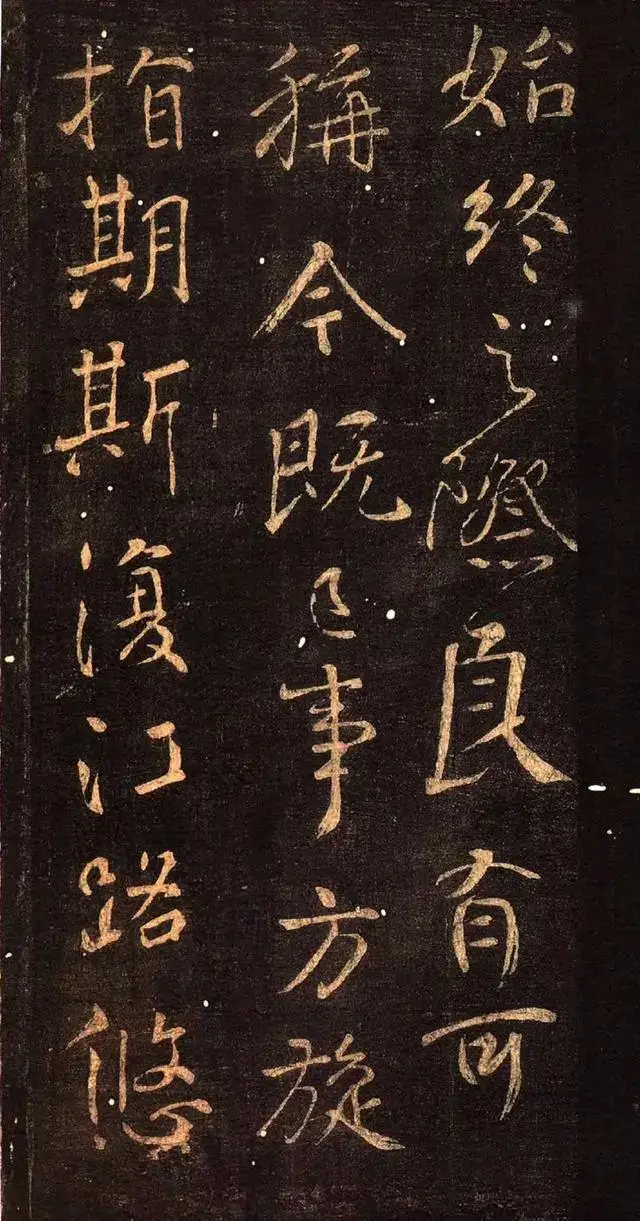 始終之際良有可
稱今既已事方旋
指期斯復江路悠